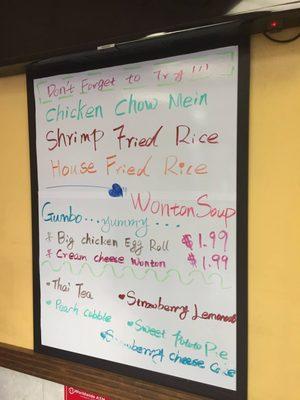 Don't Forget to Try!!!
Chicken Chow Mein
Shrimp Fried Rice
House Fried Rice
Wonton Soup
Gumbo...yummy....
* Big chicken Egg Roll $1.99
* Cream cheese Wonton $1.99
• Thai Tea
• Strawberry Lemonade
• Peach Cobble
• Sweet Potato Pie
• Strawberry Cheese Cake
Worldwide ATM